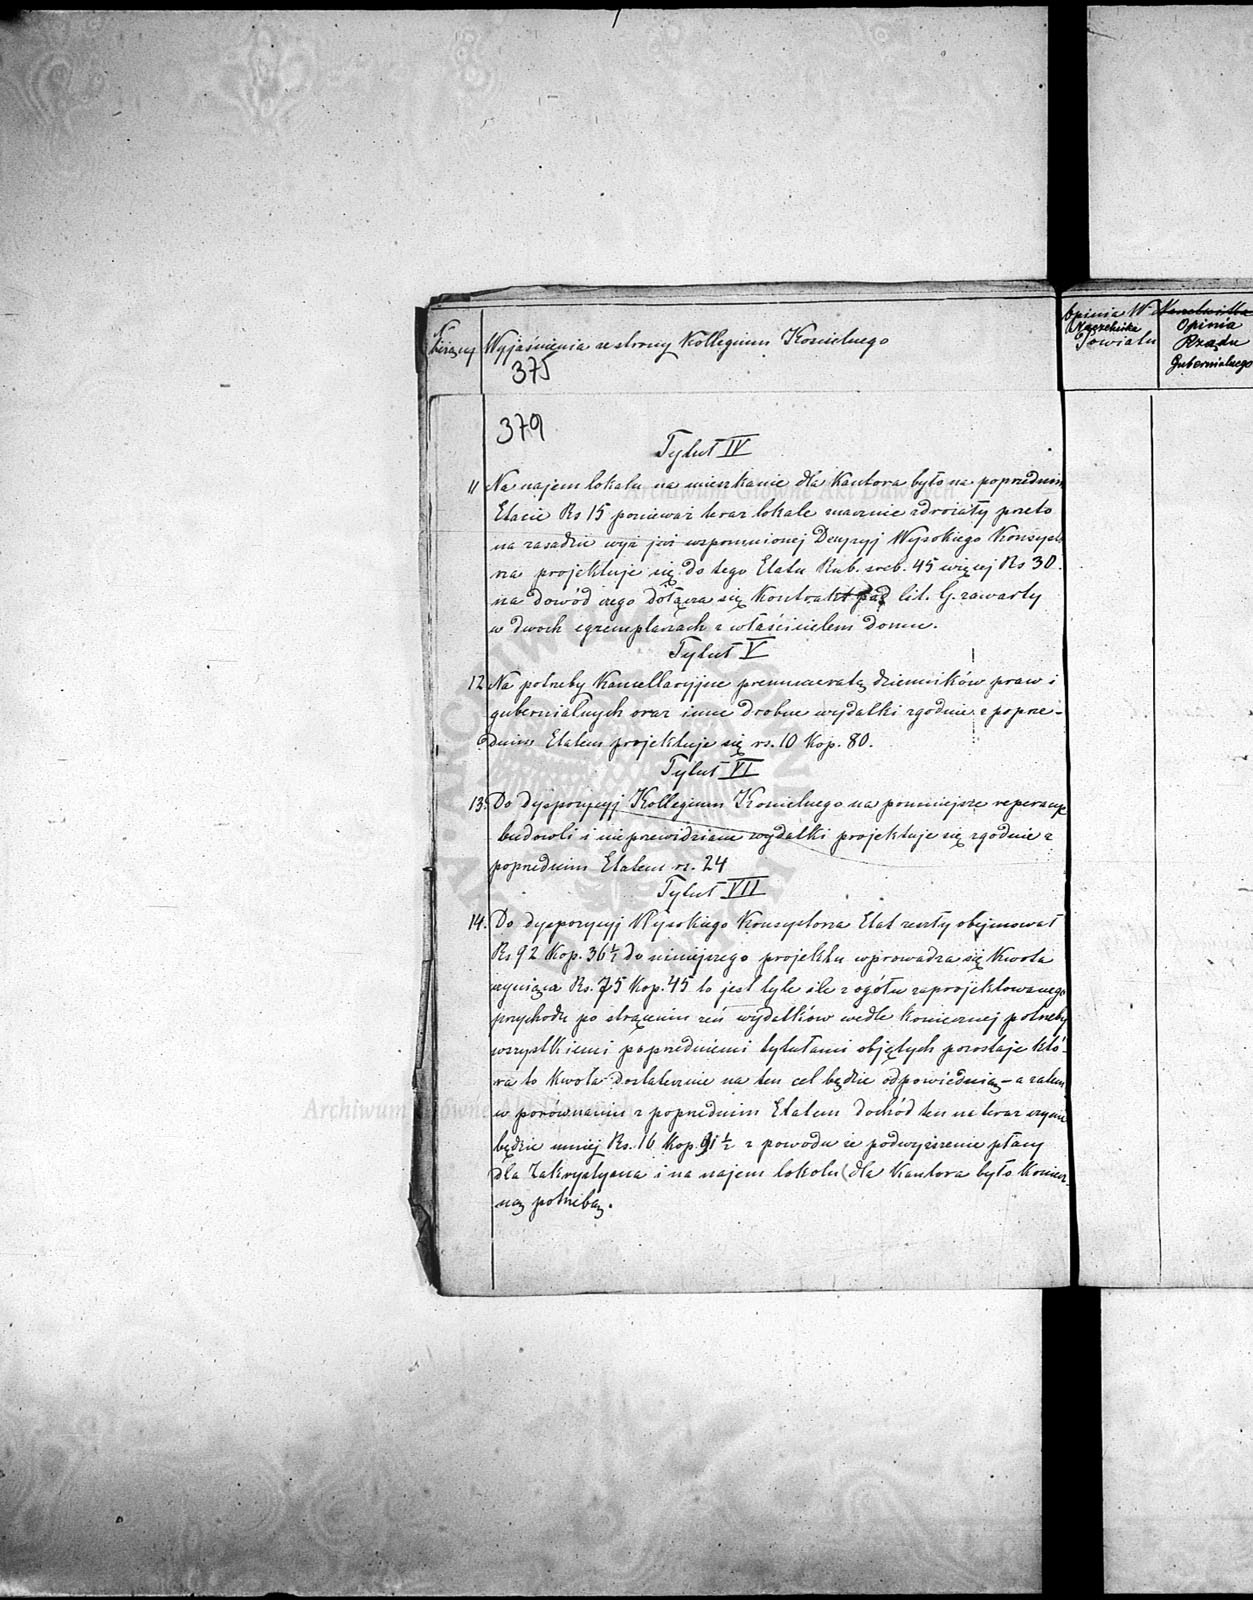 bieżący
Wyjaśnienia ze strony Kollegium Kościelnego
375
Opinia W.
Naczelnika
Powiatu
Opinia
Rządu
Gubernialnego
379
Tytuł IV
11 Na najem lokalu na mieszkanie dla Kantora było na poprzednim
Etacie Rs 15 ponieważ teraz lokale znacznie zdrożały przeto
na zasadzie wyż już wspomnionej Decyzyj Wysokiego Konsysto
rza projektuje się do tego Etatu Rub. sreb. 45 więcej Rs 30.
na dowód czego dołącza się Kontrakt pod lit. G. zawarty
w dwóch egzemplarzach z właścicielem domu.
Tytuł V
12 Na potrzeby Kancellaryjne prenumeratę dzienników praw i
gubernialnych oraz inne drobne wydatki zgodnie z poprze-
dnim Etatem projektuje się rs. 10 Kop. 80.
Tytuł VI
13. Do dyspozycyj Kollegium Kościelnego na pomniejsze reperacye
budowli i nieprzewidziane wydatki projektuje się zgodnie z
poprzednim Etatem rs. 24
Tytuł VII
14. Do dyspozycyj Wysokiego Konsystorza Etat zeszły obejmował
Rs 92 Kop. 36½ do niniejszego projektu wprowadza się Kwota
wynosząca Rs. 75 Kop. 45 to jest tyle ile z ogółu zaprojektowanego
przychodu po strąceniu zeń wydatków wedle koniecznej potrzeby
wszystkiemi poprzedniemi tytułami objętych pozostaje któ-
ra to Kwota dostatecznie na ten cel będzie odpowiednią – a zatem
w porównaniu z poprzednim Etatem dochód ten na teraz
będzie mniej Rs. 16 Kop. 91½ z powodu że podwyższenie płacy
dla Zakrystyana i na najem lokalu dla Kantora było koniecz-
ną potrzebą.
Archiwum Główne Akt Dawnych
Archiwum Główne Akt Dawnych